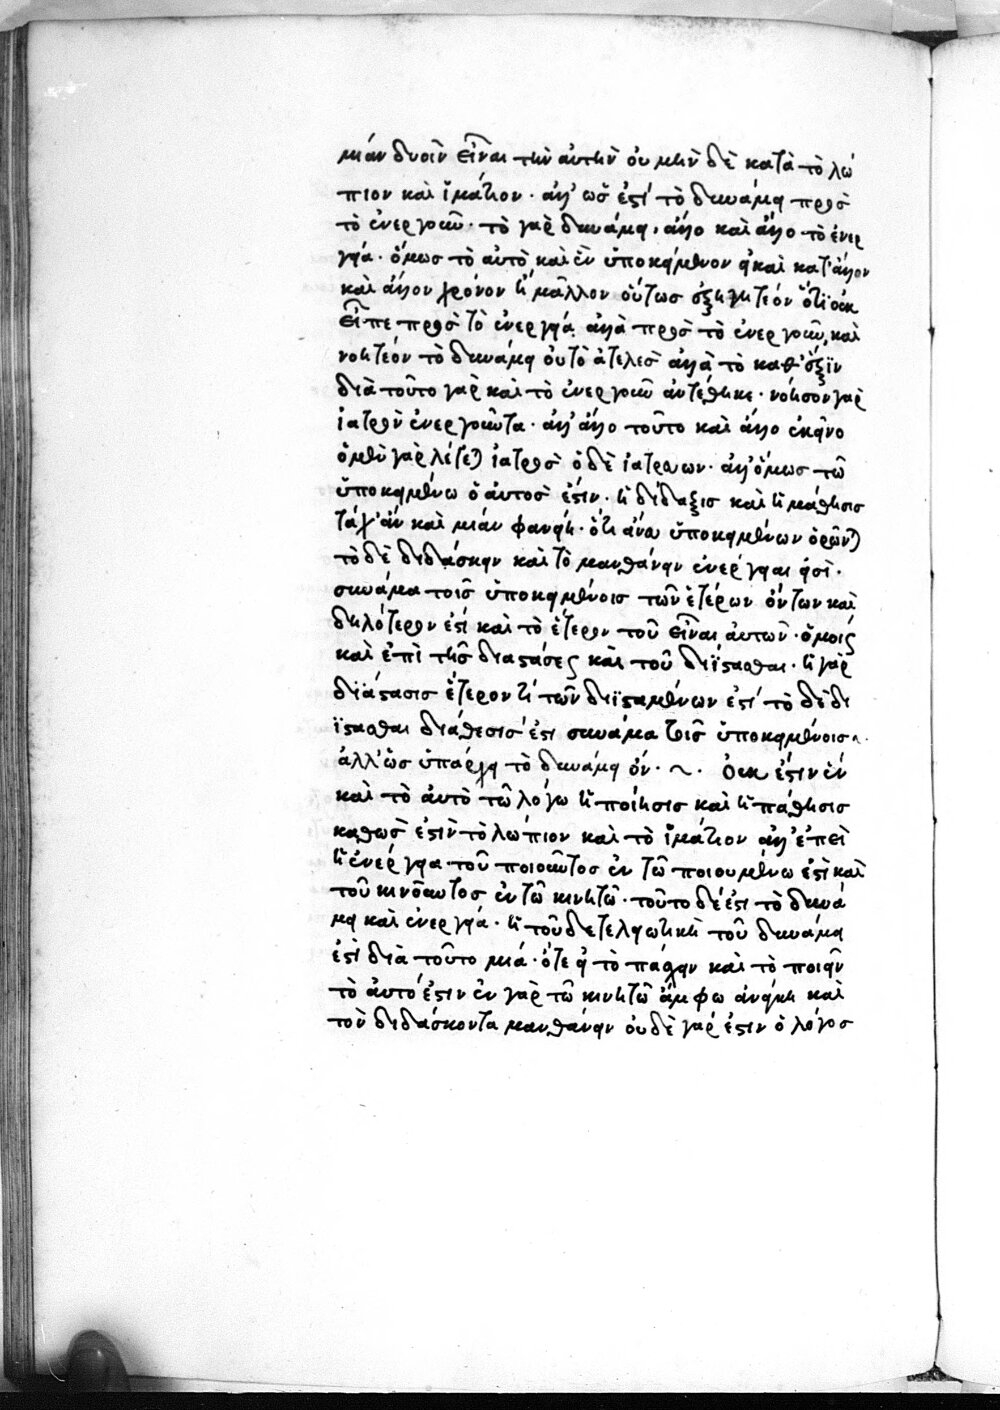 μιὰν δυοῖν εἶναι τὴν αὐτὴν οὐ μὴν δὲ κατὰ τὸ λώ
πιον καὶ ἱμάτιον· ἀλλ' ὡς ἐστὶ τὸ δυνάμει πρὸς
τὸ ἐνεργοῦν· τὸ γὰρ δυνάμει, ἄλλο καὶ ἄλλο τὸ ἐνερ
γείᾳ· ὅμως τὸ αὐτὸ καὶ ἓν ὑποκείμενον εἰ καὶ κατ' ἄλλον
καὶ ἄλλον χρόνον ἢ μᾶλλον οὕτως ἐξηγητέον ὅτι οὐκ
εἶπε πρὸς τὸ ἐνεργείᾳ ἀλλὰ πρὸς τὸ ἐνεργοῦν, καὶ
νοητέον τὸ δυνάμει οὐ τὸ ἀτελὲς ἀλλὰ τὸ καθ' ἕξιν
διὰ τοῦτο γὰρ καὶ τὸ ἐνεργοῦν ἀντέθηκε· νόησον γὰρ
ἰατρὸν ἐνεργοῦντα· ἀλλ' ἄλλο τοῦτο καὶ ἄλλο ἐκεῖνο
ὁ μὲν γὰρ λέγεται ἰατρὸς ὁ δὲ ἰατρεύων· ἀλλ' ὅμως τῶ
ὑποκειμένω ὁ αὐτός ἐστιν· ἡ δίδαξις καὶ ἡ μάθησις
τάχ' ἂν καὶ μιὰν φανείη· ὅτι ἄνευ ὑποκειμένων ὁρῶνται
τὸ δὲ διδάσκειν καὶ τὸ μανθάνειν ἐνέργειαι εἰσὶ·
σὺν ἅμα τοῖς ὑποκειμένοις τῶν ἑτέρων ὄντων καὶ
δηλότερόν ἐστι καὶ τὸ ἕτερον τοῦ εἶναι αὐτῶν· ὁμοίως
καὶ ἐπὶ τῆς διαστάσεως καὶ τοῦ διΐστασθαι· ἡ γὰρ
διάστασις ἕτερόν τι τῶν διϊσταμένων ἐστί τὸ δὲ δι
ΐστασθαι διάθεσίς ἐστι σὺν ἅμα τοῖς ὑποκειμένοις·
ἀλλ' ὡς ὑπάρχει τὸ δυνάμει ὄν· ~· Οὐκ ἔστιν ἓν
καὶ τὸ αὐτὸ τῶ λόγω ἡ ποίησις καὶ ἡ πάθησις
καθώς ἐστιν τὸ λώπιον καὶ τὸ ἱμάτιον ἀλλ' ἐπεὶ
ἡ ἐνέργεια τοῦ ποιοῦντος ἐν τῶ ποιουμένω ἐστὶ καὶ
τοῦ κινοῦντος ἐν τῶ κινητῶ· τοῦτο δέ ἐστι τὸ δυνά
μει καὶ ἐνεργείᾳ· ἡ τοῦδε τελειωτικὴ τοῦ δυνάμει
ἐστὶ διὰ τοῦτο μία· ὅτε εἰ τὸ πάσχειν καὶ τὸ ποιεῖν
τὸ αὐτό ἐστιν ἐν γὰρ τῶ κινητῶ ἄμφω ἀνάγκη καὶ
τὸν διδάσκοντα μανθάνειν οὐδὲ γάρ ἐστιν ὁ λόγος